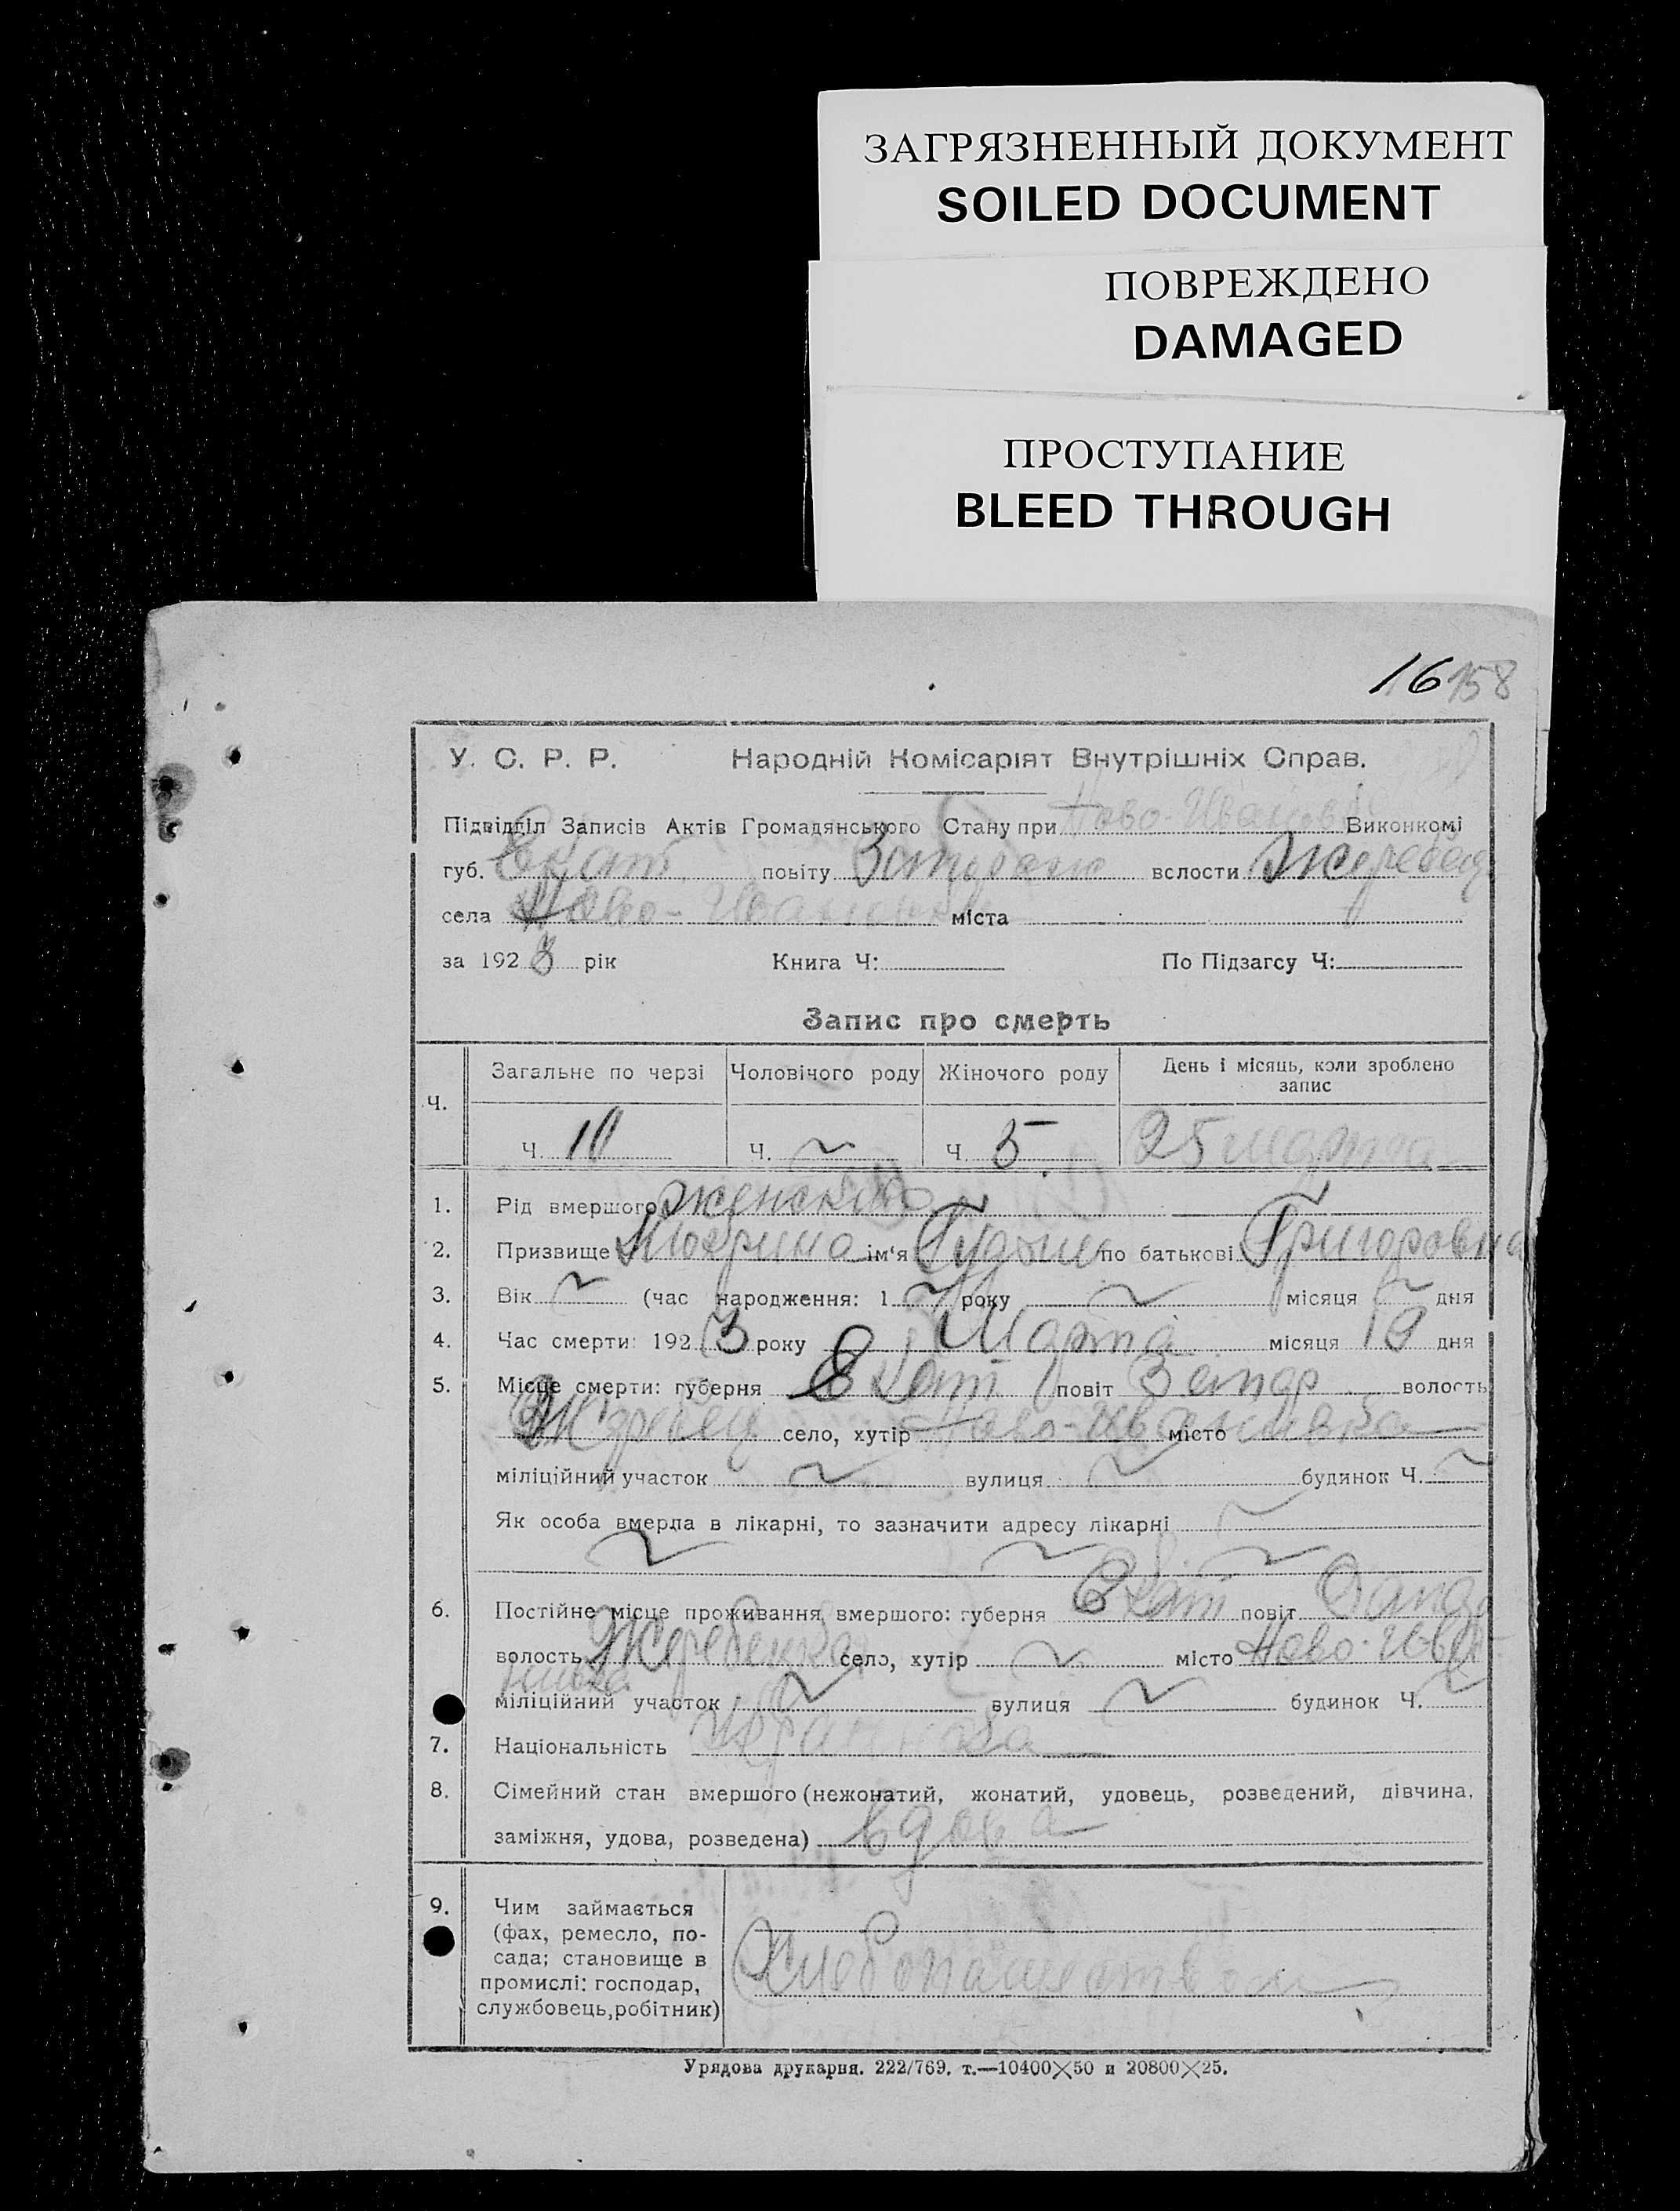 ЗАГРЯЗНЕННЫЙ ДОКУМЕНТ
SOILED DOCUMENT
ПОВРЕЖДЕНО
DAMAGED
ПРОСТУПАНИЕ
BLEED THROUGH
16 158
У. С. Р. Р. Народній Комісаріят Внутрішніх Справ.
Підвідділ Записів Актів Громадянського Стану при Ново-Иванов Виконкомі
губ. Екат. повіту Запорож вслости Жеребец
села Ново-Ивановки міста
за 1923 рік Книга Ч: По Підзагсу Ч:
Запис про смерть
Ч. Загальне по черзі Чоловічого роду Жіночого роду День і місяць, коли зроблено
запис
Ч. 10 Ч. ~ Ч. 5. 25 марта
1. Рід вмершого женский
2. Призвище ім'я по батькові Григоровна
3. Вік ~ (час народження: 1 ~ року ~ місяця ~ дня
4. Час смерти: 1923 року Марта місяця 19 дня
5. Місце смерти: губерня Екат повіт Запор волость
Жеребец село, хутір Ново-Ивановка місто
міліційний участок ~ вулиця ~ будинок Ч. ~
Як особа вмерла в лікарні, то зазначити адресу лікарні ~
~ ~ ~
6. Постійне місце проживання вмершого: губерня Екат повіт Запор
волость село, хутір ~ місто Ново-Ива-
новка
міліційний участок ~ вулиця ~ будинок Ч. ~
7. Національність
8. Сімейний стан вмершого (нежонатий, жонатий, удовець, розведений, дівчина,
заміжня, удова, розведена) вдова
9. Чим займається
(фах, ремесло, по-
сада; становище в
промислі: господар,
службовець, робітник)
Хлебопашеством
Урядова друкарня. 222/769. т.—10400×50 и 20800×25.